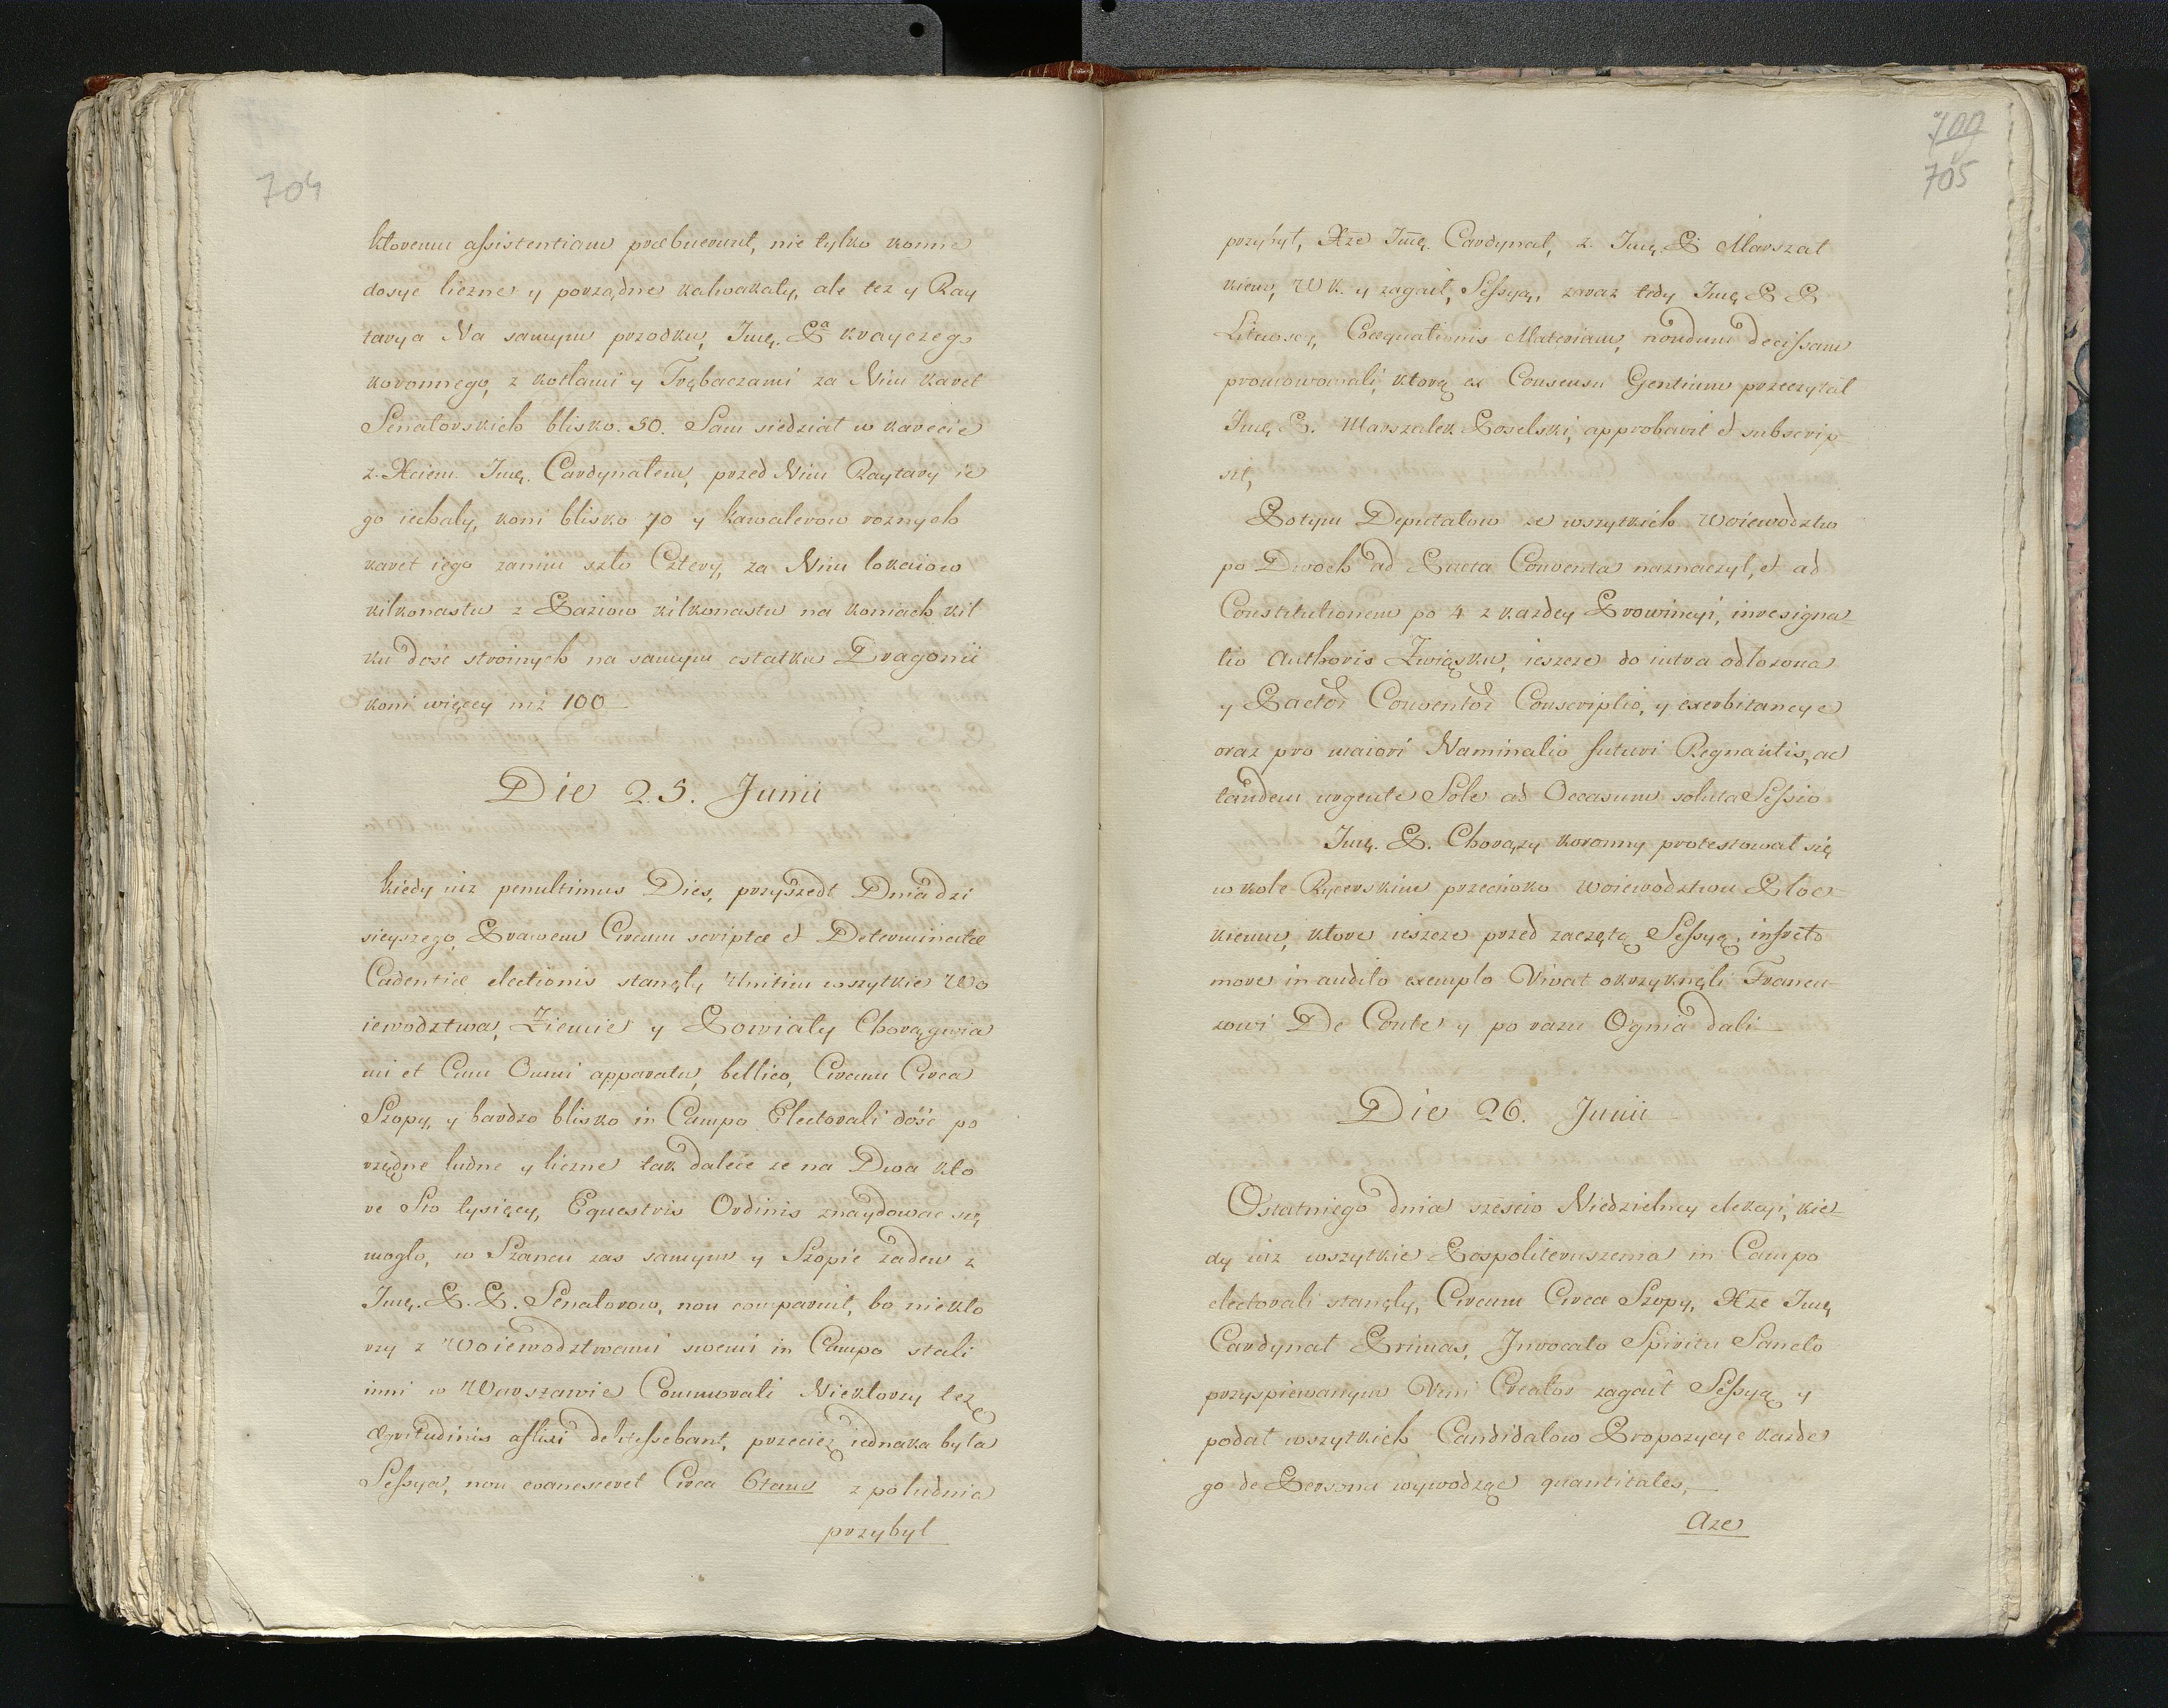 704
ktoremu assistentiam præbuerunt, nie tylko konne
dosyc liczne y porządne kalwakaty, ale tez y Ray
tarya Na samym przodku, Jmę. Pa krayczego
koronnego, z kotlami y Trębaczami za Nim karet
Senatorskich blisko. 50. Sam siedział w karecie
z. Xciem. Jmę. Cardynałem, przed Nim Raytary ie
go iechały, koni blisko 70 y kawalerow roznych
karet iego zanim szło Cztery, za Nim lokaiow
kilkonastu z Paziow kilkonastu na koniach kil
ku dość stroinych na samym ostatku Dragonii
koni więcey niz 100
Die 25. Junii
kiedy iuz penultimus Dies, przyszedł Dnia dzi
sieyszego, Prawem Circum scriptæ et Determinatæ
Cadentiæ electionis stanęły Unitim wszytkie Wo
iewodztwa, Ziemie y Powiaty Chorągwia
mi et Cum Omni apparatu, bellico, Circum Circa
Szopy, y bardzo blisko in Campo Electorali dość po
rządne ludne y liczne tak dalece ze na Dwa kto
re Sto tysięcy, Equestris Ordinis znaydowac się
mogło, w Szancu zas samym y Szopie zaden z
Jmę. P. P. Senatorow, non comparuit, bo niekto
rzy z Woiewodztwami swemi in Campo stali
inni w Warszawie Commorati Niektorzy tez
ægritudinis aflixi delitessebant, przeciez iednaka była
Sessya, non evanesceret Circa 6tam z południa
przybył
700
705
przybył, Xze Jmę. Cardynał, z. Jmę. P. Marszał
kiem, W K. y zagaił, Sessyą, zaraz tedy Jmę P P
Litwscy, Coequationis Materiam, nondum decissam
promowowali, ktorą ex Consensu Gentium przeczytał
Jmę P. Marszałek Poselski, approbavit et subscrip
sit,
Potym Deputatow ze wszytkich Woiewodztw
po Dwoch ad Pacta Conventa naznaczył, et ad
Constitutionem po 4 z kazdey Prowincyi, invesigna-
tio Authoris Związku, ieszcze do iutra odłozona
y Pactor Conventor Conscriptio, y exorbitancye
oraz pro maiori Naminatio futuri Regnantis, ac
tandem urgente Sole ad Occasum soluta Sessio
Jmę. P. Chorązy koronny protestował się
w kole Rycerskim przeciwko Woiewodztwu Ploc-
kiemu, ktore ieszcze przed zaczętą Sessyą, insveto
more in audito exemplo Vivat okrzyknęli Francu-
zowi De Conte y po razu Ognia dali
Die 26. Junii
Ostatniego dnia szescio Niedzielney elekcyi, kie-
dy iuz wszytkie Pospoliteruszenia in Campo
electorali stanęły, Circum Circa Szopy, Xze Jmę
Cardynał Primas, Jnvocato Spiritu Sancto
przyspiewanym Veni Creator zagaił Sessyą y
podał wszytkich Candidatow Propozycye kazde
go de Persona wywodząc quantitates,
Aze